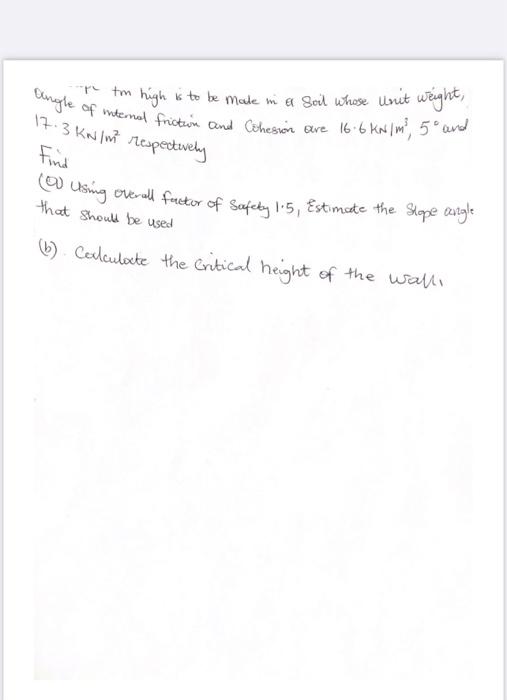 high is to be made in a Soil whose Unit weight,
angle of internal friction and Cohesion are 16.6 KN/m³, 5° and
17.3 KN/m² respectively
Find
(a) Using overall factor of Safety 1.5, Estimate the Slope angle
that Should be used
(b). Calculate the Critical height of the wall.